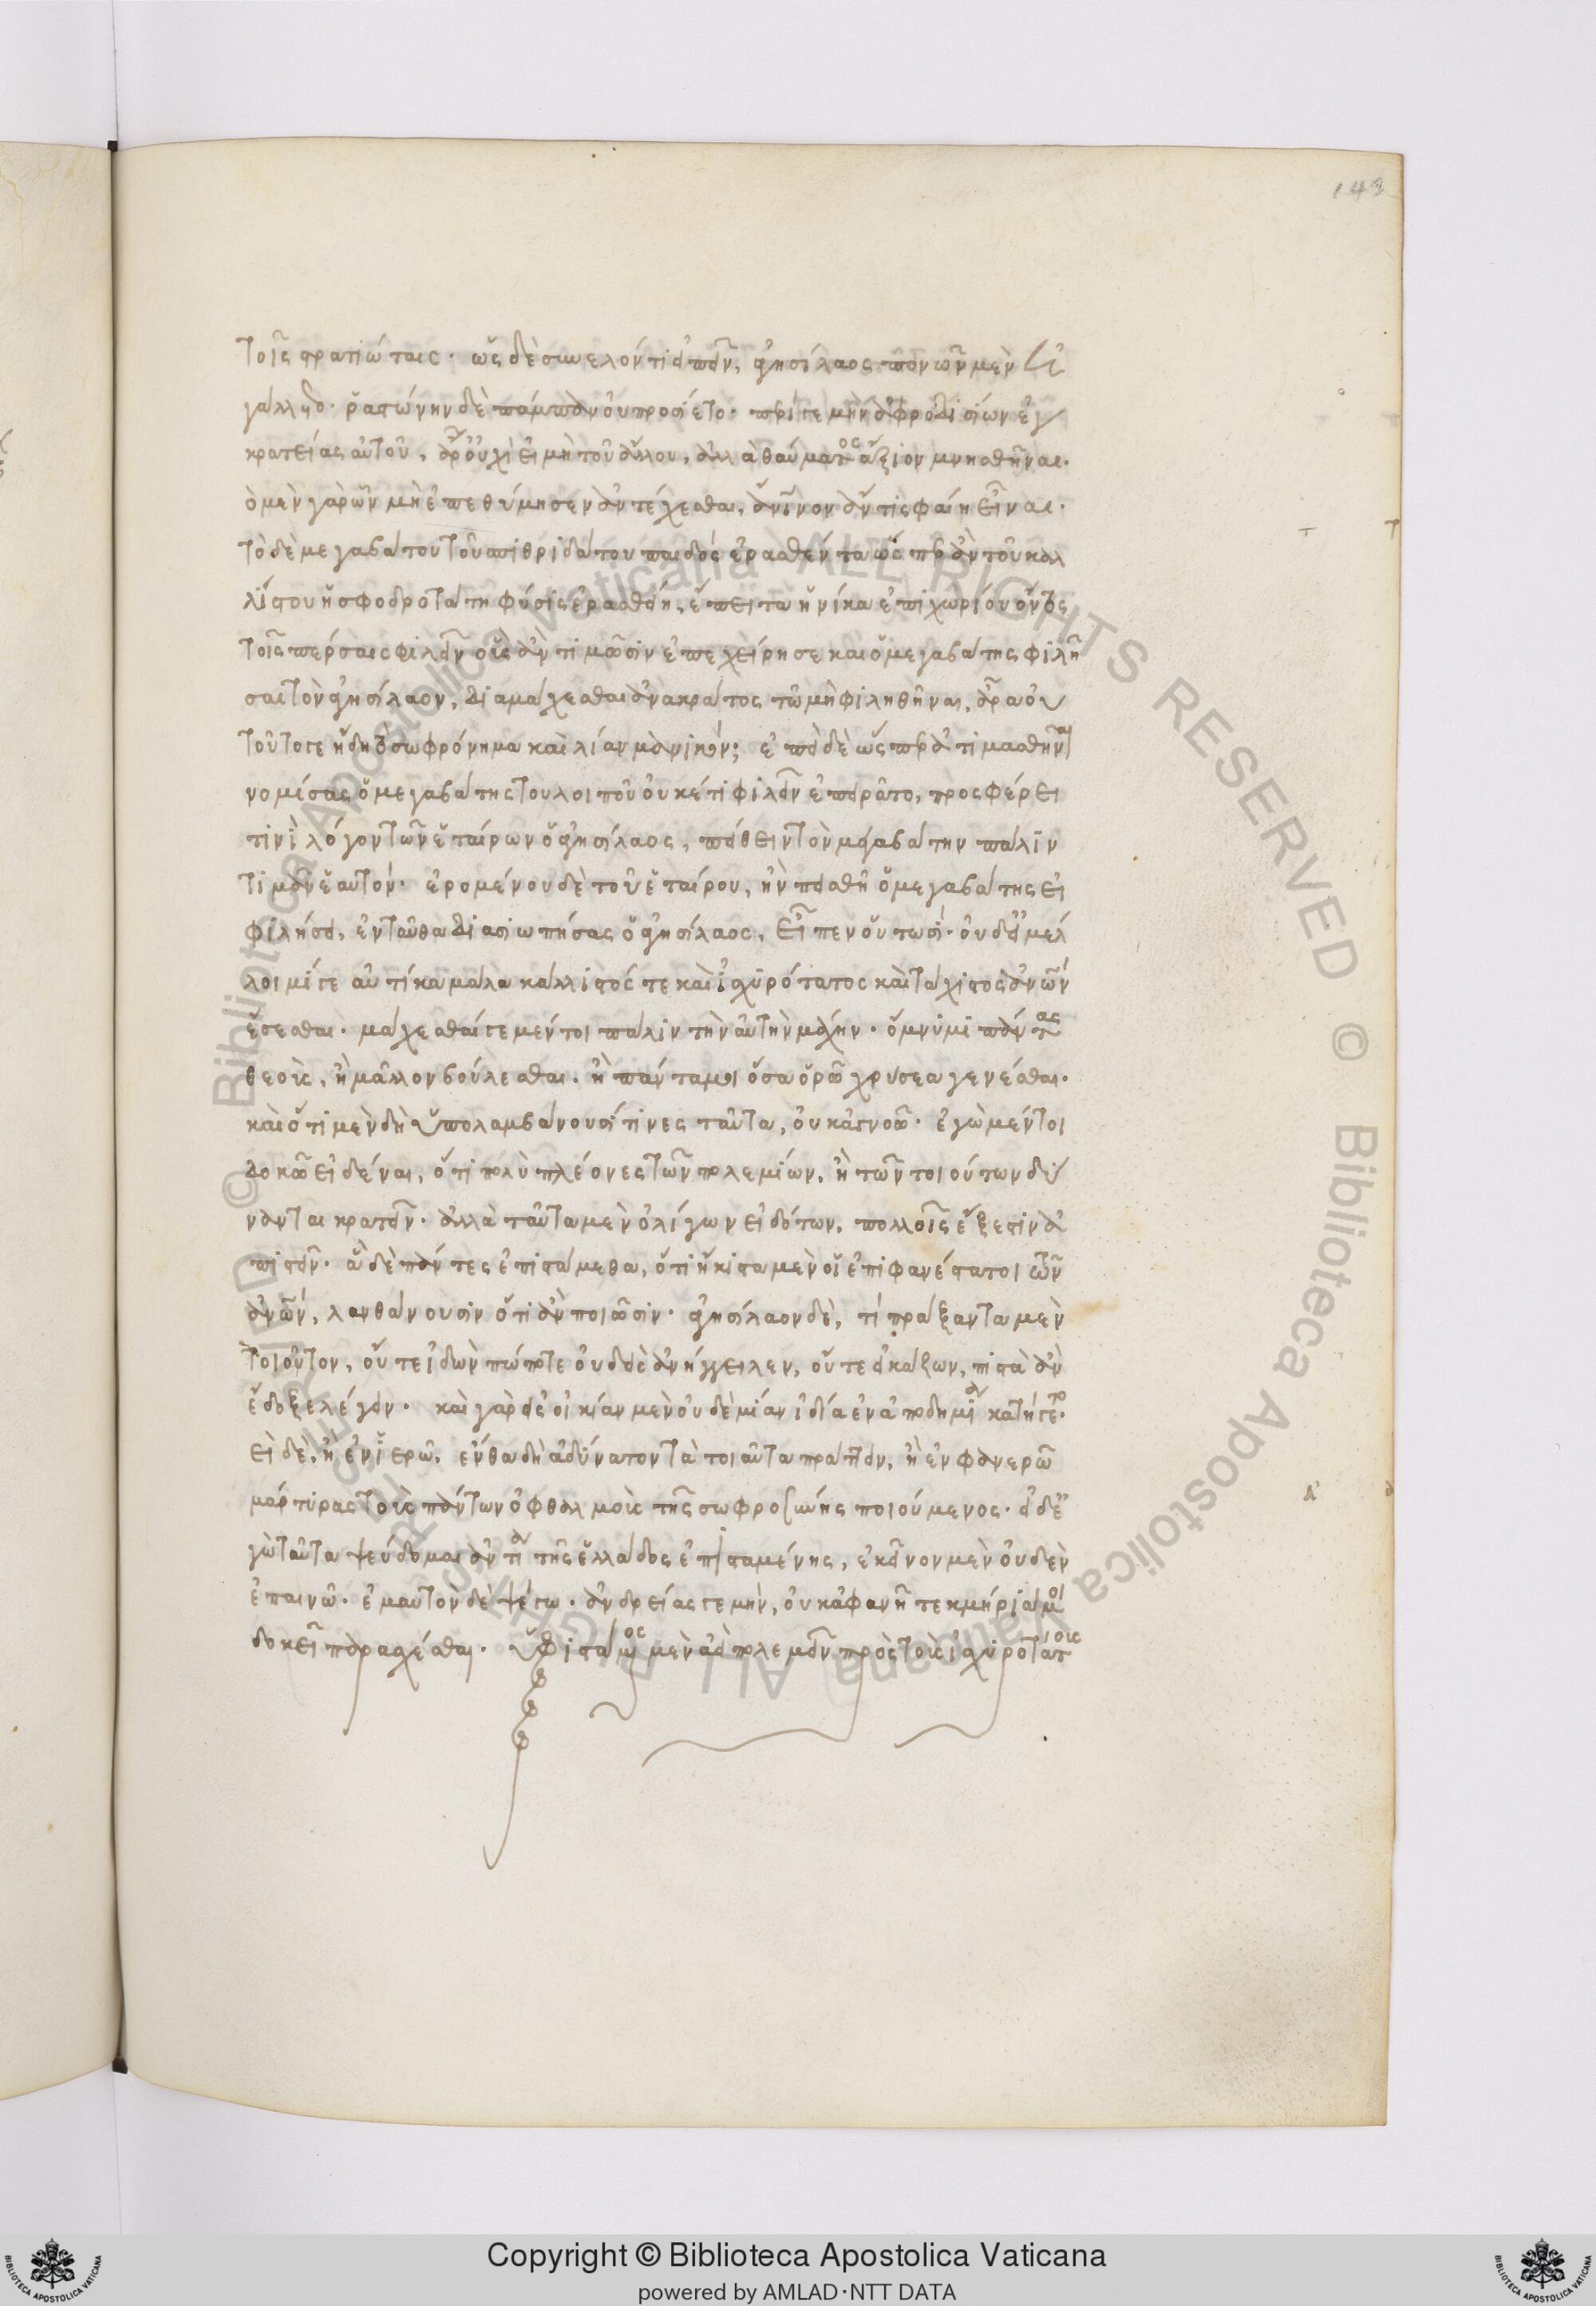 143
τοῖς στρατιώταις. ὡς δὲ συνελόντι εἰπεῖν, ἀγησίλαος πόνων μὲν ἠ
γάλλετο. ῥαστώνην δὲ πάμπαν οὐ προσίετο. περί γε μὴν ἀφροδισίων ἐγ
κρατείας αὐτοῦ, ἆρ' οὐχὶ εἰ μὴ τοῦ ἄλλου, ἀλλὰ θαύματος ἄξιον μνησθῆναι.
ὁ μὲν γὰρ ὧν μὴ ἐπεθύμησεν ἀντέχεσθαι, ἀν
τὸ δὲ μεγαβάτου τοῦ σπιθριδάτου παιδὸς ἐρασθέντα ὥσπερ ἂν τοῦ καλ
λίστου ἡ σφοδροτάτη φύσις ἐρασθείη, ἔπειτα ἡνίκα ἐπιχωρίου ὄντος
τοῖς πέρσαις φιλεῖν οὓς ἂν τιμῶσιν ἐπεχείρησε καὶ ὁ μεγαβάτης φιλῆ
σαι τὸν ἀγησίλαον, διαμάχεσθαι ἀνακράτος τῶ μὴ φιληθῆναι, ἆρα οὐ
τοῦτό γε ἤδη τὸ σωφρόνημα καὶ λίαν μανικόν; ἐπεὶ δὲ ὥσπερ ἀτιμασθῆναι
νομίσας ὁ μεγαβάτης τοῦ λοιποῦ οὐκέτι φιλεῖν ἐπειρᾶτο, προσφέρει
τινὶ λόγον τῶν ἑταίρων ὁ ἀγησίλαος, πείθειν τὸν μεγαβάτην πάλιν
τιμᾶν ἑαυτόν. ἐρομένου δὲ τοῦ ἑταίρου, ἢν πεισθῆ ὁ μεγαβάτης εἰ
φιλήσει, ἐνταῦθα διασιωπήσας ὁ ἀγησίλαος, εἶπεν οὑτωσί. οὐδ' εἰ μέλ
λοιμί γε αὐτίκα μάλα κάλλιστός τε καὶ ἰσχυρότατος καὶ τάχιστος ἀνων
ἔσεσθαι. μάχεσθαί γε μέντοι πάλιν τὴν αὐτὴν μάχην. ὄμνυμι πάντας
θεοὺς, ἦ μᾶλλον βούλεσθαι. ἢ πάντα μοι ὅσα ὁρῶ χρύσεα γενέσθαι.
καὶ ὅτι μὲν δὴ ὑπολαμβάνουσί τινες ταῦτα, οὐκ ἀγνοῶ. ἐγὼ μέντοι
δοκῶ εἰδέναι, ὅτι πολὺ πλέονες τῶν πολεμίων, ἢ τῶν τοιούτων δύ
νανται κρατεῖν. ἀλλὰ ταῦτα μὲν ὀλίγων εἰδότων, πολλοῖς ἔξεστιν ἀ
πιστεῖν. ἃ δὲ πάντες ἐπιστάμεθα, ὅτι ἥκιστα μὲν οἱ ἐπιφανέστατοι τῶν
ἀνων, λανθάνουσιν ὅτι ἂν ποιῶσιν. ἀγησίλαον δὲ, τί πράξαντα μὲν
τοιοῦτον, οὔτε ἰδὼν πώποτε οὐδεὶς ἀνήγγειλεν, οὔτε εἰκάζων, πιστὰ ἂν
ἔδοξε λέγειν. καὶ γὰρ εἰς οἰκίαν μὲν οὐδεμίαν ἰδία ἐν ἀποδημία κατήγετο.
εἰ δὲ, ἢ ἐν ἱερῶ, ἔνθα δὴ ἀδύνατον τὰ τοιαῦτα πράττειν, ἢ ἐν φανερῶ
μάρτυρας τοὺς πάντων ὀφθαλμοὺς τῆς σωφροσύνης ποιούμενος. εἰ δ' ἐ
γὼ ταῦτα ψεύδομαι ἀντία τῆς ἑλλάδος ἐπισταμένης, ἐκεῖνον μὲν οὐδὲν
ἐπαινῶ. ἐμαυτὸν δὲ ψέγω. ἀνδρείας γε μὴν, οὐκ ἀφανῆ τεκμήριά μοι
δοκεῖ παρασχέσθαι. ὑφιστάμενος μὲν ἀεὶ πολεμεῖν πρὸς τοὺς ἰσχυροτάτους
© Biblioteca Apostolica Vaticana ALL RIGHTS RESERVED
Copyright © Biblioteca Apostolica Vaticana
powered by AMLAD·NTT DATA
BIBLIOTECA APOSTOLICA VATICANA
BIBLIOTECA APOSTOLICA VATICANA